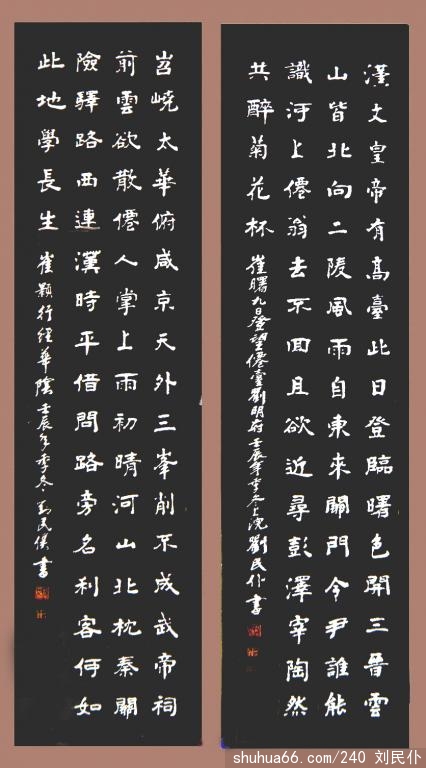 漢文皇帝有高臺此日登臨曙色開三晉雲
山皆北向二陵風雨自東來關門令尹誰能
識河上僊翁去不回且欲近尋彭澤宰陶然
共醉菊花杯 崔曙九日登望僊臺劉明府 壬辰年季冬上浣劉民仆書
岧嶢太華俯咸京天外三峯削不成武帝祠
前雲欲散僊人掌上雨初晴河山北枕秦關
險驛路西連漢時平借問路旁名利客何如
此地學長生 崔顥行經華陰 壬辰年季冬劉民僕書
shuhua66.com/240 刘民仆